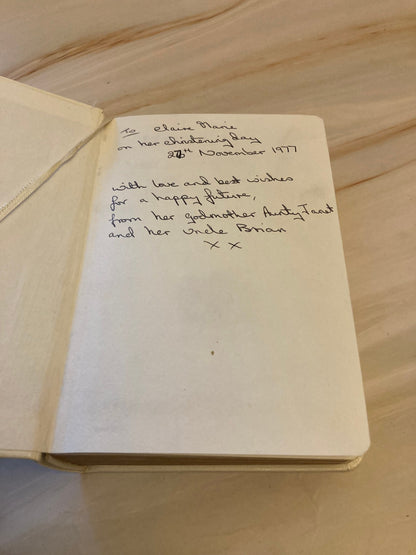 To Claire Marie
on her christening day
27th November 1977
with love and best wishes
for a happy future,
from her godmother Aunty Janet
and her uncle Brian
x x